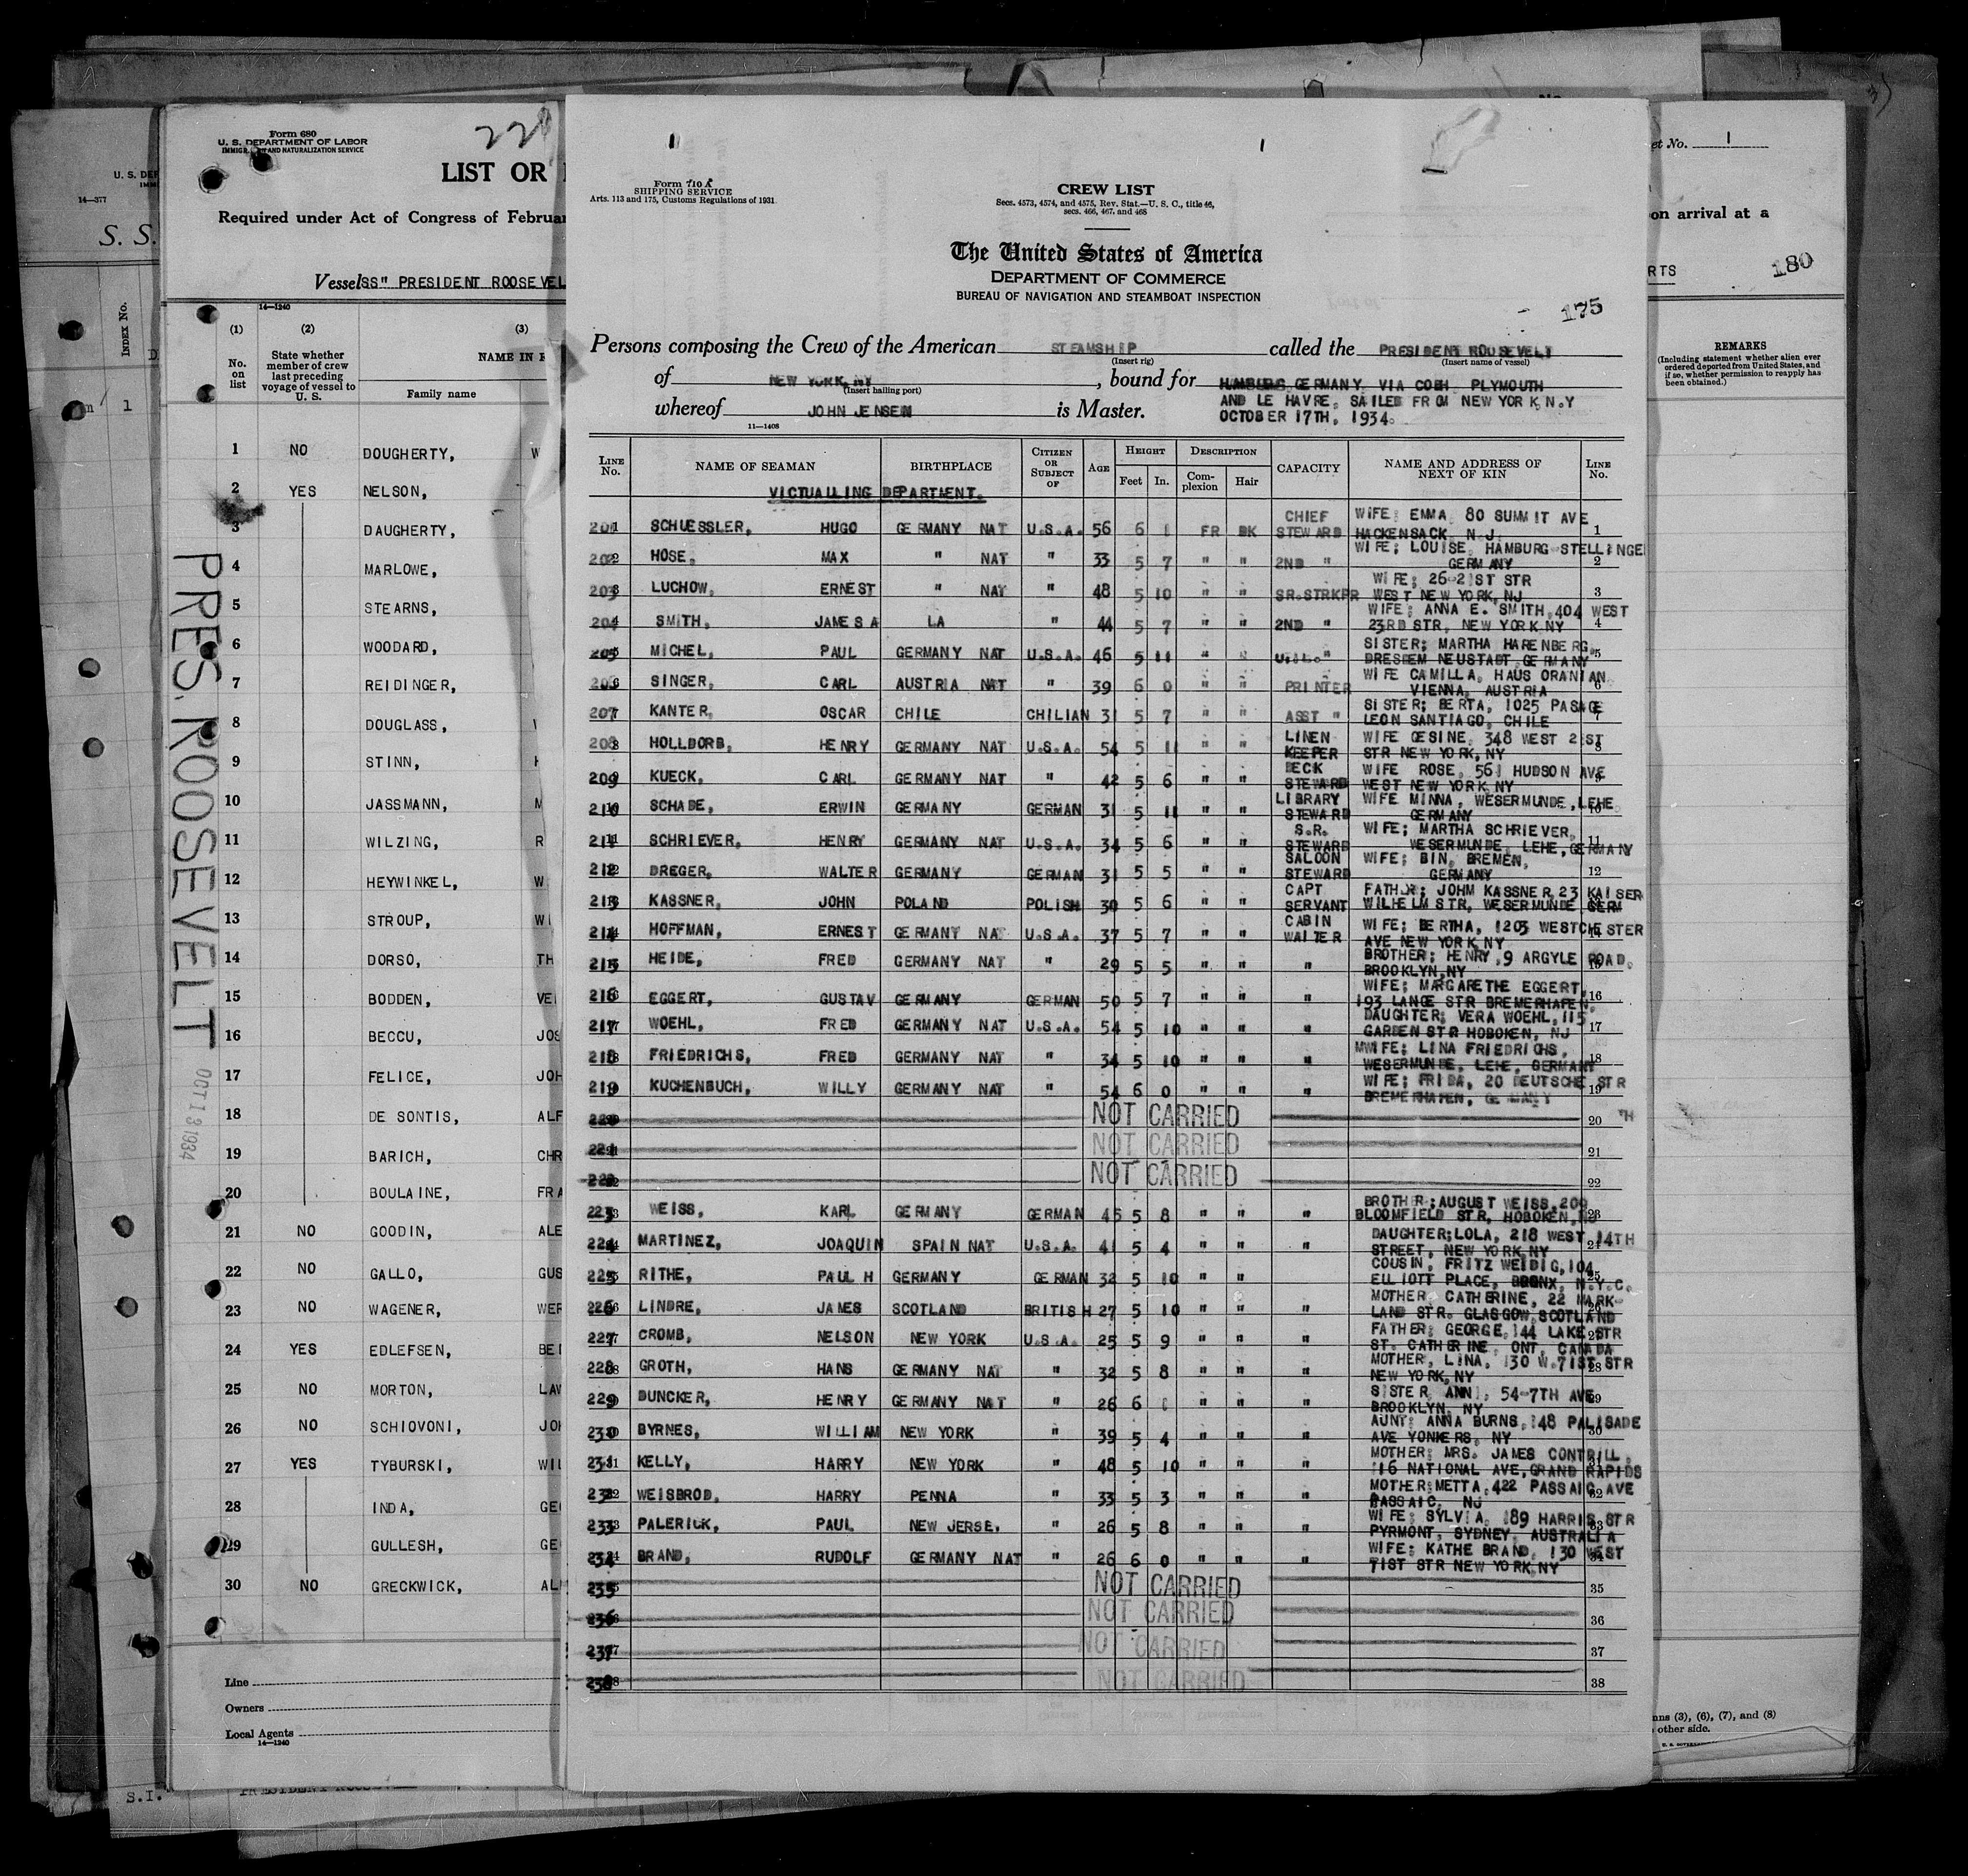 Form 680
U. S. DEPARTMENT OF LABOR
AND NATURALIZATION SERVICE
LIST OR
Required under Act of Congress of
Vessel SS" PRESIDENT
14—1240
(1) (2) (3)
No. on list
State whether member of crew last preceding voyage of vessel to U. S.
NAME IN
Family name
1 NO DOUGHERTY,
2 YES NELSON,
3 DAUGHERTY,
4 MARLOWE,
5 STEARNS,
6 WOODARD,
7 REIDINGER,
8 DOUGLASS,
9 STINN,
10 JASSMANN,
11 WILZING,
12 HEYWINKEL,
13 STROUP,
14 DORSO,
15 BODDEN,
16 BECCU,
17 FELICE,
18 DE SONTIS,
19 BARICH,
20 BOULAINE,
21 NO GOODIN,
22 NO GALLO,
23 NO WAGENER,
24 YES EDLEFSEN,
25 NO MORTON,
26 NO SCHIOVONI,
27 YES TYBURSKI,
28 INDA,
29 GULLESH,
30 NO GRECKWICK,
Line
Owners
Local Agents
14—1240
PRES. ROOSEVELT
OCT 13 1934
14—377
S. S.
INDEX No.
1
S.I.
1 1
Form 710 A
SHIPPING SERVICE
Arts. 113 and 175, Customs Regulations of 1931
CREW LIST
Secs. 4573, 4574, and 4575, Rev. Stat.—U. S. C., title 46,
secs. 466, 467, and 468
The United States of America
DEPARTMENT OF COMMERCE
BUREAU OF NAVIGATION AND STEAMBOAT INSPECTION
175
Persons composing the Crew of the American STEAMSHIP called the PRESIDENT ROOSEVELT
(Insert rig) (Insert name of vessel)
of NEW YORK, NY, bound for HAMBURG GERMANY VIA COBH PLYMOUTH
(Insert hailing port)
AND LE HAVRE, SAILED FROM NEW YORK, N.Y
whereof JOHN JENSEN is Master.
OCTOBER 17TH, 1934.
11—1408
LINE No. NAME OF SEAMAN BIRTHPLACE CITIZEN OR SUBJECT OF AGE HEIGHT Feet In. DESCRIPTION Complexion Hair CAPACITY NAME AND ADDRESS OF NEXT OF KIN LINE No.
VICTUALLING DEPARTMENT.
201 SCHUESSLER, HUGO GERMANY NAT U.S.A. 56 6 1 FR DK CHIEF STEWARD WIFE: EMMA, 80 SUMMIT AVE HACKENSACK, N.J. 1
202 HOSE, MAX " NAT " 33 5 7 " " 2ND " WIFE; LOUISE, HAMBURG-STELLINGE GERMANY 2
203 LUCHOW, ERNEST " NAT " 48 5 10 " " SR.STRKPR WIFE; 26-21ST STR WEST NEW YORK, NJ 3
204 SMITH, JAMES A LA " 44 5 7 " " 2ND " WIFE; ANNA E. SMITH, 404 WEST 23RD STR, NEW YORK, NY 4
205 MICHEL, PAUL GERMANY NAT U.S.A. 46 5 11 " " " SISTER; MARTHA HARENBERG, DRESDEM NEUSTADT, GERMANY 5
206 SINGER, CARL AUSTRIA NAT " 39 6 0 " " PRINTER WIFE CAMILLA, HAUS ORANIAN VIENNA, AUSTRIA 6
207 KANTER, OSCAR CHILE CHILIAN 31 5 7 " " ASST " SISTER; BERTA, 1025 PASAGE LEON SANTIAGO, CHILE 7
208 HOLLDORB, HENRY GERMANY NAT U.S.A. 54 5 11 " " LINEN KEEPER WIFE GESINE, 348 WEST 21ST STR NEW YORK, NY 8
209 KUECK, CARL GERMANY NAT " 42 5 6 " " DECK STEWARD WIFE ROSE, 561 HUDSON AVE WEST NEW YORK, NY 9
210 SCHADE, ERWIN GERMANY GERMAN 31 5 11 " " LIBRARY STEWARD WIFE MINNA, WESERMUNDE, LEHE GERMANY 10
211 SCHRIEVER, HENRY GERMANY NAT U.S.A. 34 5 6 " " S.R. STEWARD WIFE; MARTHA SCHRIEVER, WESERMUNDE, LEHE, GERMANY 11
212 DREGER, WALTER GERMANY GERMAN 31 5 5 " " SALOON STEWARD WIFE; BIN, BREMEN, GERMANY 12
213 KASSNER, JOHN POLAND POLISH 30 5 6 " " CAPT SERVANT FATHR; JOHM KASSNER, 23 KAISER WILHELM STR, WESERMUNDE GERM
214 HOFFMAN, ERNEST GERMANY NAT U.S.A. 37 5 7 " " CABIN WAITER WIFE; BERTHA, 1203 WESTCHESTER AVE NEW YORK, NY 14
215 HEIDE, FRED GERMANY NAT " 29 5 5 " " " BROTHER; HENRY, 9 ARGYLE ROAD, BROOKLYN, NY 15
216 EGGERT, GUSTAV GERMANY GERMAN 50 5 7 " " " WIFE; MARGARETHE EGGERT, 193 LANGE STR BREMERHAFEN, 16
217 WOEHL, FRED GERMANY NAT U.S.A. 54 5 10 " " " DAUGHTER; VERA WOEHL, 115 GARDEN STR HOBOKEN, NJ 17
218 FRIEDRICHS, FRED GERMANY NAT " 34 5 10 " " " MWIFE; LINA FRIEDRICHS, WESERMUNDE, LEHE, GERMANY 18
219 KUCHENBUCH, WILLY GERMANY NAT " 54 6 0 " " " WIFE; FRIDA, 20 DEUTSCHE STR BREMERHAFEN, GERMANY 19
220 NOT CARRIED 20
221 NOT CARRIED 21
222 NOT CARRIED 22
223 WEISS, KARL GERMANY GERMAN 45 5 8 " " " BROTHER; AUGUST WEISS, 200 BLOOMFIELD STR, HOBOKEN, NJ 23
224 MARTINEZ, JOAQUIN SPAIN NAT U.S.A. 41 5 4 " " " DAUGHTER; LOLA, 218 WEST 14TH STREET, NEW YORK, NY 24
225 RITHE, PAUL H GERMANY GERMAN 32 5 10 " " " COUSIN, FRITZ WEIDIG, 104 ELLIOTT PLACE, BRONX, N.Y.C. 25
226 LINDRE, JAMES SCOTLAND BRITISH 27 5 10 " " " MOTHER CATHERINE, 22 MARK-LAND STR. GLASGOW, SCOTLAND 26
227 CROMB, NELSON NEW YORK U.S.A. 25 5 9 " " " FATHER; GEORGE, 144 LAKE STR ST. CATHERINE, ONT, CANADA 27
228 GROTH, HANS GERMANY NAT " 32 5 8 " " " MOTHER, LINA, 130 W. 71ST STR NEW YORK, NY 28
229 DUNCKER, HENRY GERMANY NAT " 26 6 " " " SISTER ANNI, 54-7TH AVE BROOKLYN, NY 29
230 BYRNES, WILLIAM NEW YORK " 39 5 4 " " " AUNT; ANNA BURNS, 148 PALISADE AVE YONKERS, NY 30
231 KELLY, HARRY NEW YORK " 48 5 10 " " " MOTHER; MRS. JAMES CONTRILL, 116 NATIONAL AVE, GRAND RAPIDS 31
232 WEISBROD, HARRY PENNA " 33 5 3 " " " MOTHER; METTA, 422 PASSAIC AVE PASSAIC, NJ 32
233 PALERICK, PAUL NEW JERSE, " 26 5 8 " " " WIFE; SYLVIA, 189 HARRIS STR PYRMONT, SYDNEY, AUSTRALIA 33
234 BRAND, RUDOLF GERMANY NAT " 26 6 0 " " " WIFE; KATHE BRAND, 130 WEST 71ST STR NEW YORK, NY 34
235 NOT CARRIED 35
236 NOT CARRIED 36
237 NOT CARRIED 37
238 NOT CARRIED 38
No. 1
on arrival at a
180
REMARKS
(Including statement whether alien ever ordered deported from United States, and if so, whether permission to reapply has been obtained.)
(3), (6), (7), and (8)
other side.